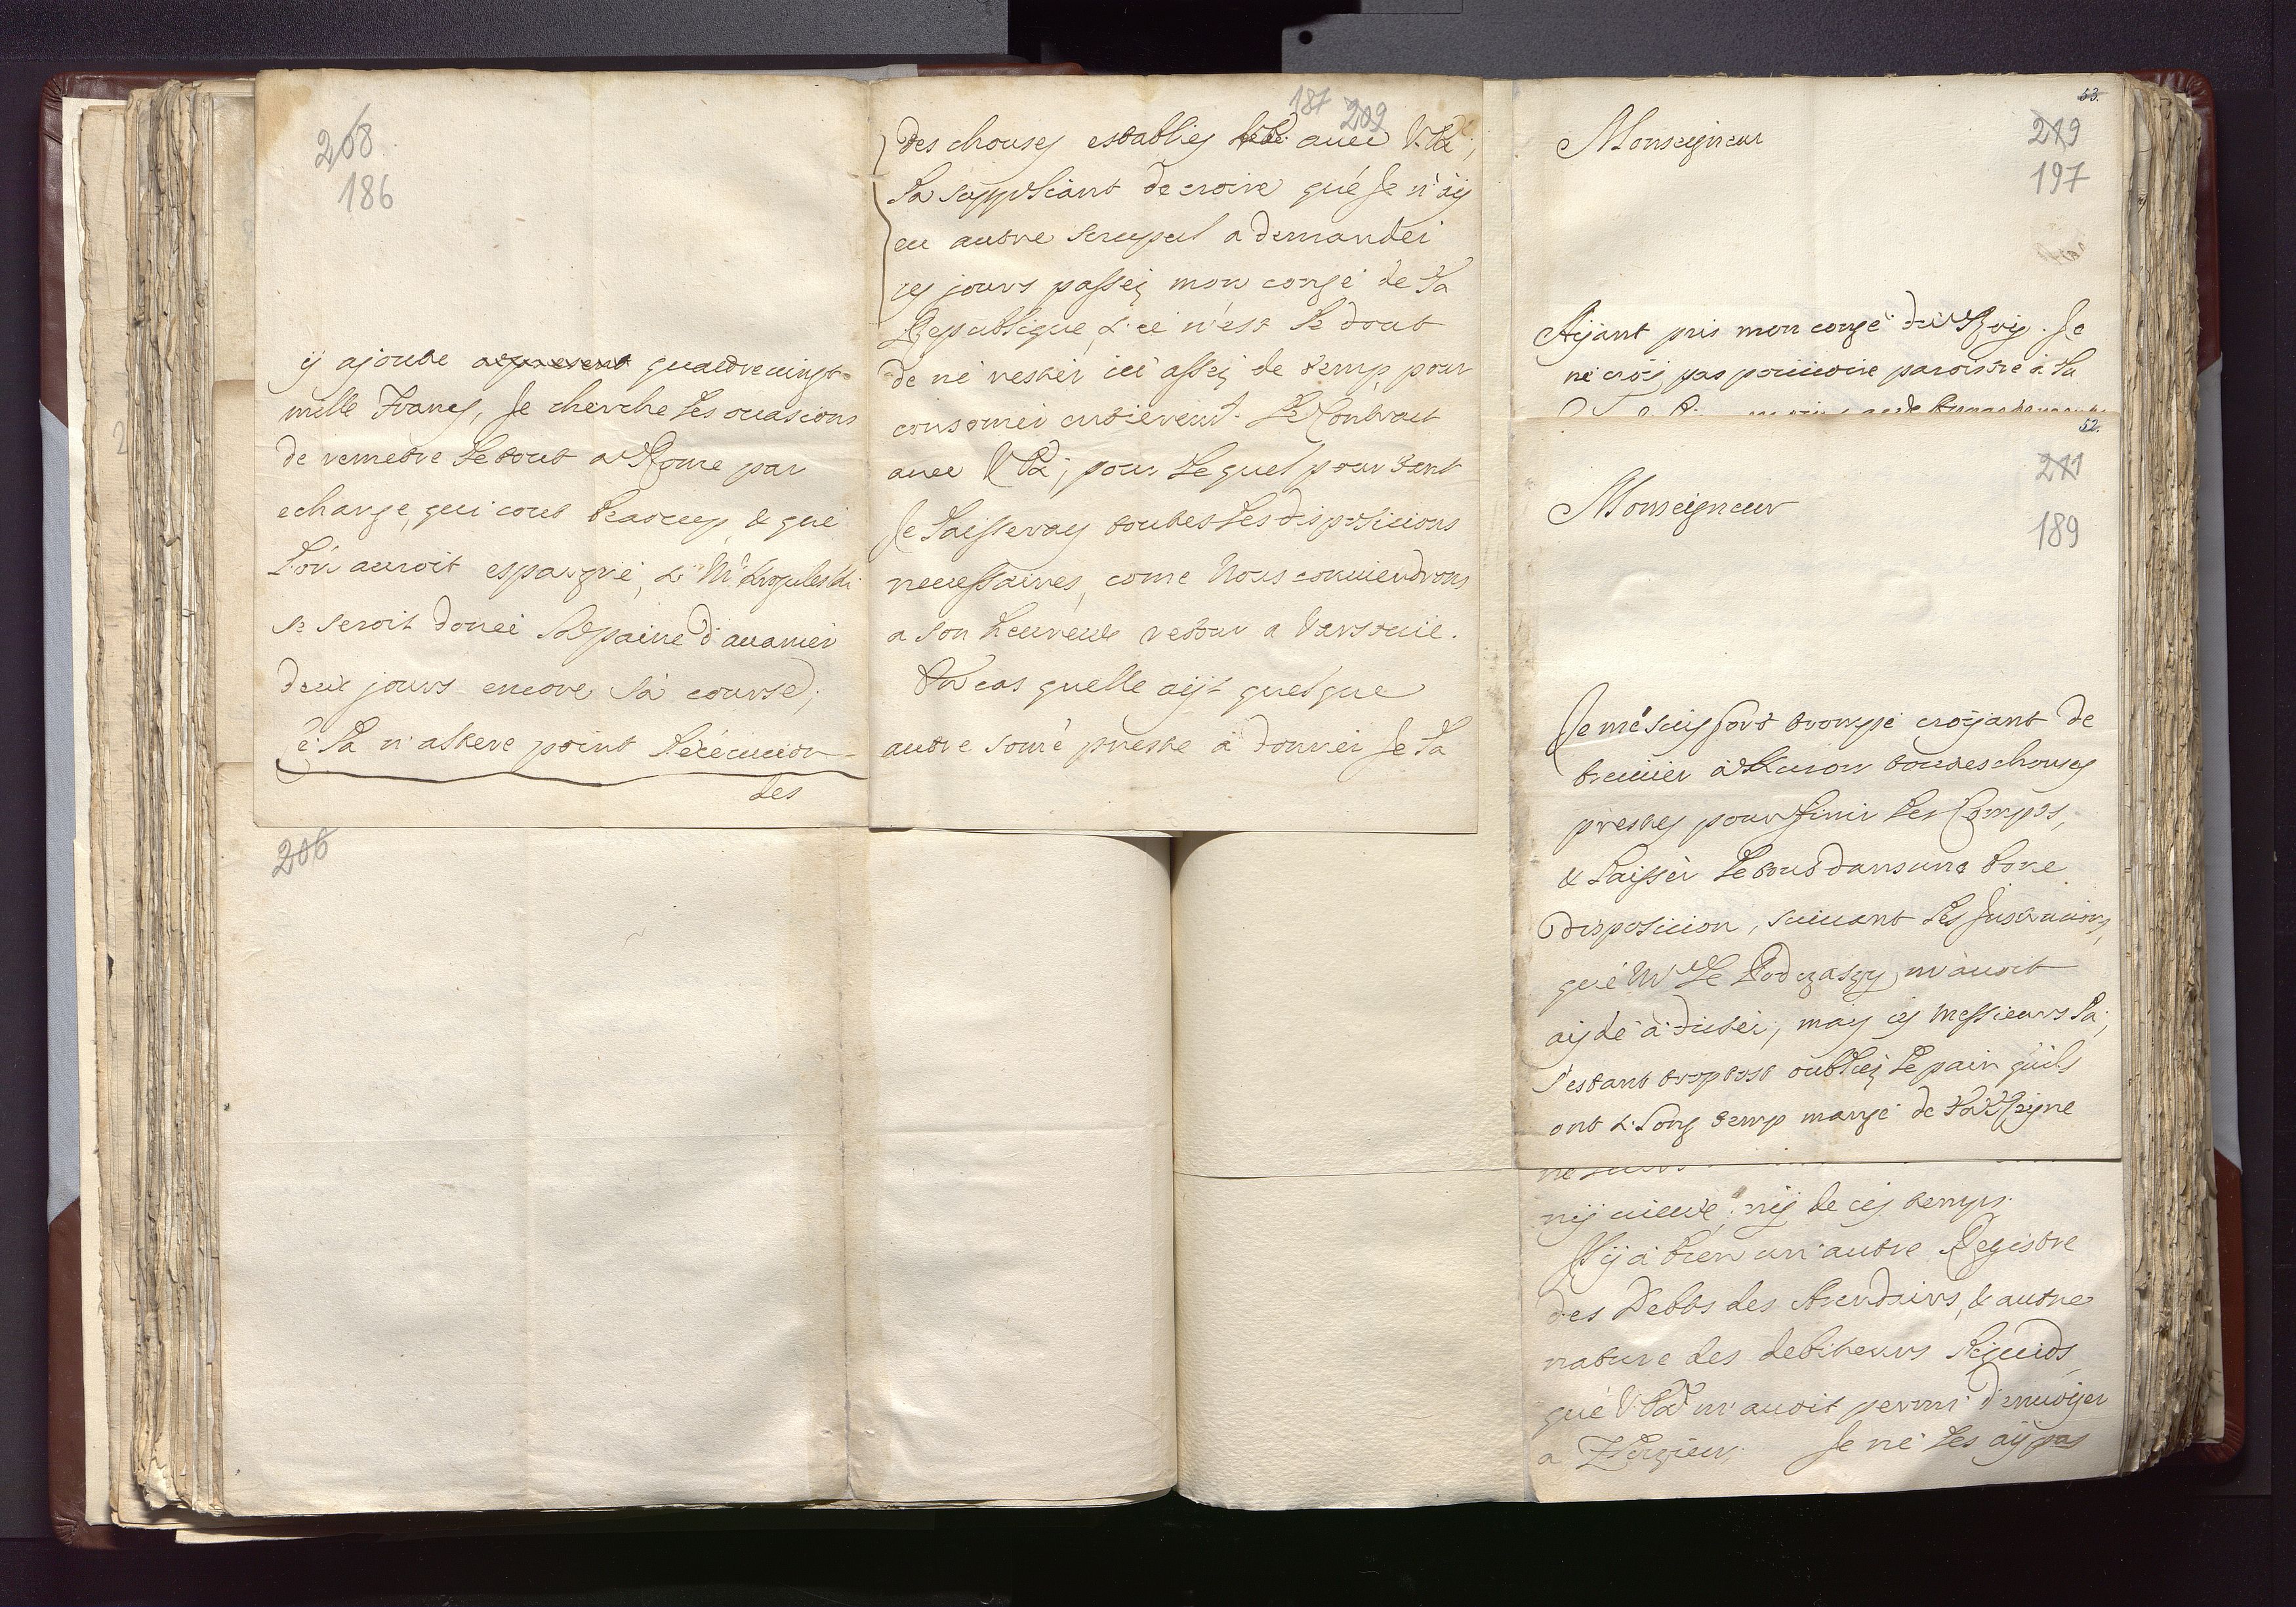 208
186
ÿ ajoute apresent quattrevingt-
mille Francs, Je cherche les ouasions
de remettre le tout a Rome par
echange, qui cout beaucup, & que
l'on auroit espargné, & Mr
se seroit donei la paine d'auancer
deux jours encore sa course;
é la n'altere point l'éxécucion
des
206
187 209
des chouses establies auec V.
la suppliant de croire qué Je n'aÿ
eu autre scrupul a demander
ces jours passéz mon congé de la
Republique, & cé n'est le dout
de né rester icì asséz de temp pour
consomer entierement le Contract
auec V. pour le quel pourtant
Je laisseray toutes les disposicions
necessaires, come Nous conuiendrons
a son heureux retour a Varsouie.
En cas quelle aÿt quelque
autre somé preste à donner Je la
53.
Monseigneur
219
197
Aÿant pris mon congé du Roÿ. Je
né croÿ pas pouuoire paroistre à la
52.
211
Monseigneur
189
Je mé suis fort trompé croÿant de
treuuer à toutes chouses
prestes pour finir les Compts,
& laissèr le tout dans una bone
disposicion, suiuant les Instrucions,
qué Mr le Podczaszy m'auoit
aÿdé à dicter, mais cés Messieurs là,
s'estant troptost oubliéz le pain quils
ont & long temp mangé de la Reÿne
nÿ de cés temps.
Il ÿ à bien un'autre Registre
des Debts des Arendairs, & autre
nature des debiteurs liquids,
qué V. m'auoit permi d'enuoÿer
a Je né les aÿ pas